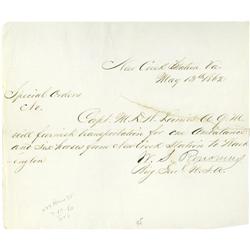 New Creek Station Va
May 13th 1862
Special Orders
No.
Capt. M. A. A. Q. M.
will furnish transportation for one Ambulance
and Six horses from New Creek Station to Wash
ington
W. S. Rosecrans
Brig Gen U.S.A.